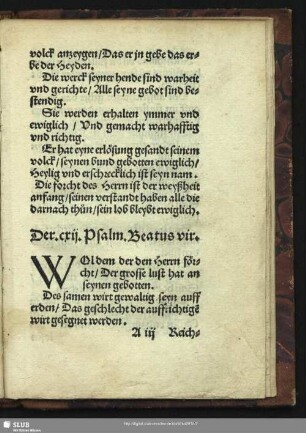 volck anzeygen/Das er jn gebe das er-
be der Heyden.
Die werck seyner hende sind warheit
vnd gerichte/Alle seyne gebot sind be-
stendig.
Sie werden erhalten ymmer vnd
ewiglich/Vnd gemacht warhafftig
vnd richtig.
Er hat eyne erlösung gesandt seinem
volck/seynen bund gebotten ewiglich/
Heylig vnd erschrecklich ist seyn nam.
Die forcht des Herrn ist der weyßheit
anfang/seinen verstandt haben alle die
darnach thün/sein lob bleybt ewiglich.
Der.cxij.Psalm.Beatus vir.
WOl dem der den Herrn för-
cht/Der grosse lust hat an
seynen gebotten.
Des samen wirt gewaltig seyn auff
erden/Das geschlecht der auffrichtigē
wirt gesegnet werden.
A iij Reich-
SLUB
Wir führen Wissen.